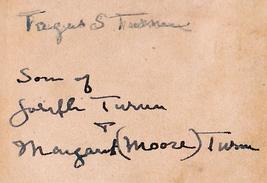 Fergus S Turner
Son of
Joseph Turner
+
Margaret (Moore) Turner